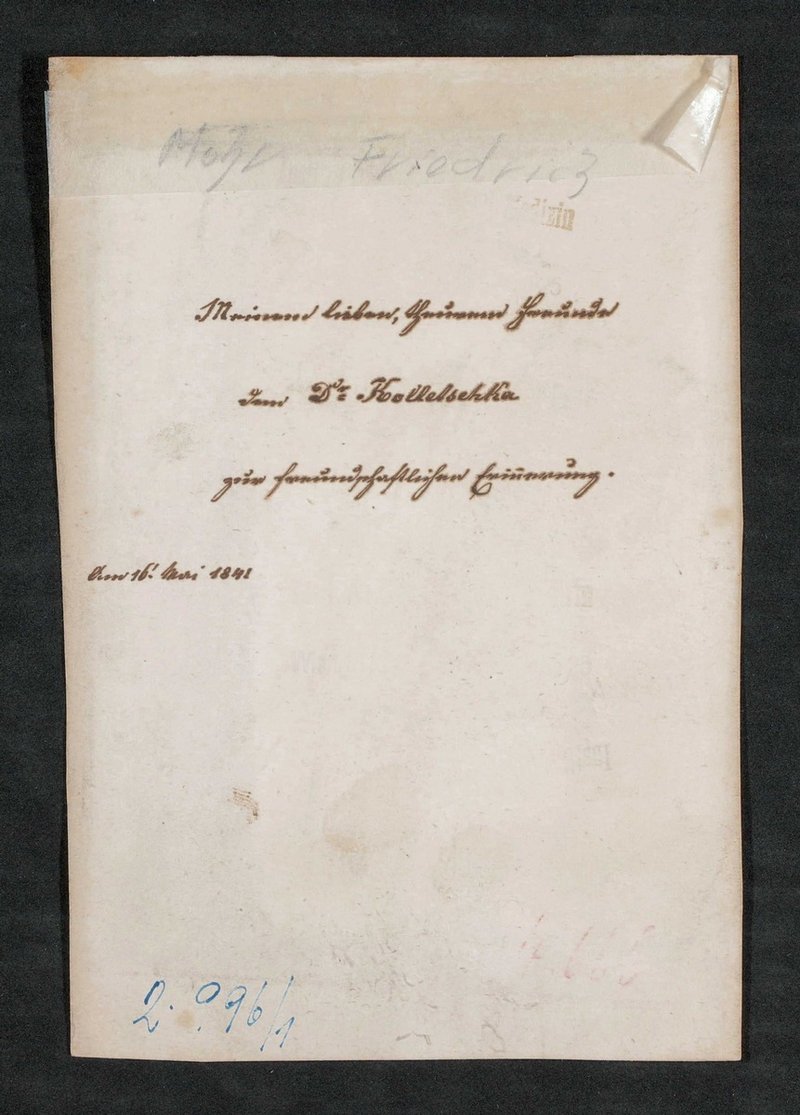 Friedrich
Meinem lieben, theuren Freunde
dem Dr. Kolletschka
zur freundschaftlichen Erinnerung.
Am 16t. Mai 1841
2. 996/1